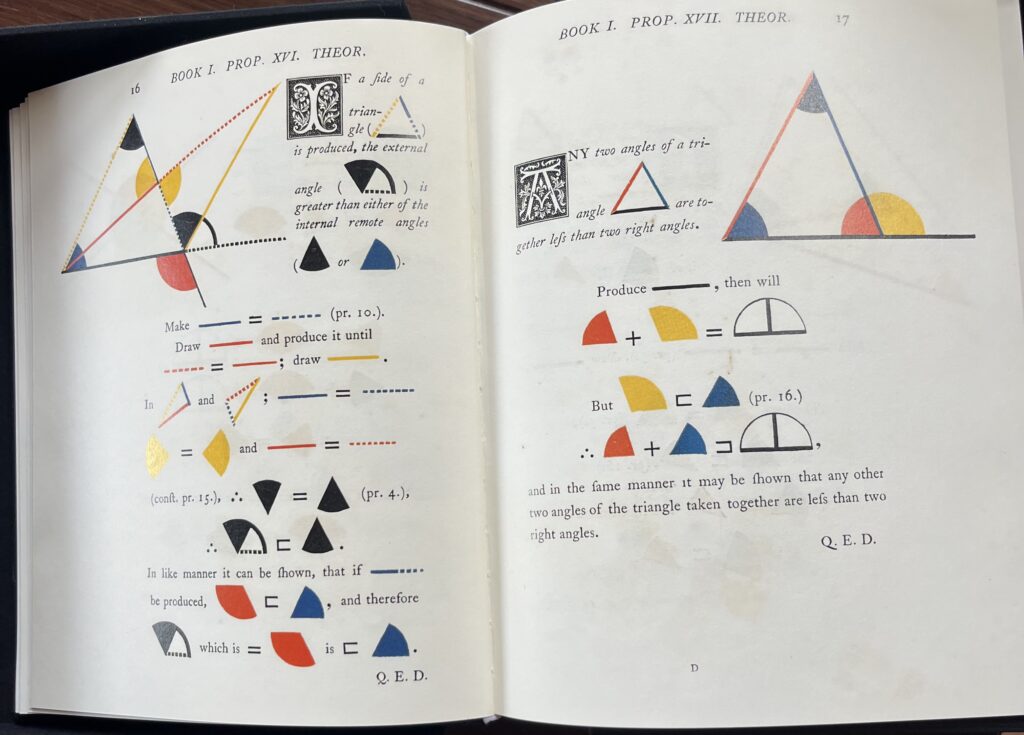 16 BOOK I. PROP. XVI. THEOR.
IF a ſide of a
trian-
gle ( )
is produced, the external
angle ( ) is
greater than either of the
internal remote angles
( or ).
Make = (pr. 10.).
Draw and produce it until
= ; draw .
In and ; =
= and =
(conſt. pr. 15.), ∴ = (pr. 4.),
∴ ⊏ .
In like manner it can be ſhown, that if
be produced, ⊏ , and therefore
which is = is ⊏ .
Q. E. D.
BOOK I. PROP. XVII. THEOR. 17
ANY two angles of a tri-
angle are to-
gether leſs than two right angles.
Produce , then will
+ =
But ⊏ (pr. 16.)
∴ + ⊐ ,
and in the ſame manner it may be ſhown that any other
two angles of the triangle taken together are leſs than two
right angles.
Q. E. D.
D